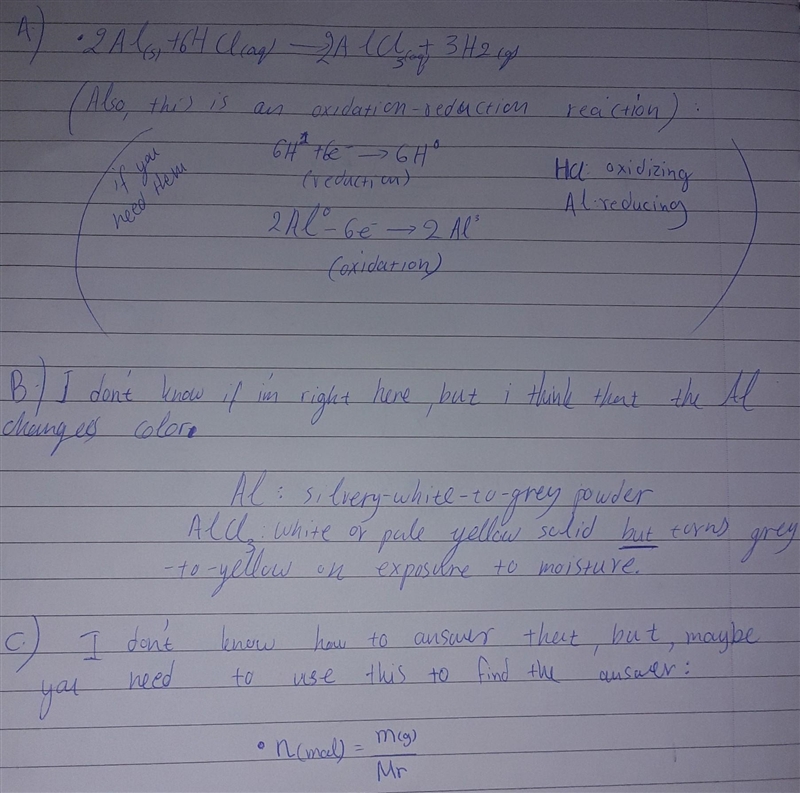 A.) • 2Al(s) + 6HCl(aq) → 2AlCl₃(aq) + 3H2(g)
(Also, this is an oxidation-reduction reaction) :
if you
need them
6H¹ + 6e⁻ → 6H⁰
(reduction)
HCl: oxidizing
Al: reducing
2Al⁰ - 6e⁻ → 2Al³
(oxidation)
B.) I don't know if im right here, but i think that the Al
changes color.
Al : silvery-white-to-grey powder
AlCl₃: white or pale yellow solid but turns grey
-to-yellow on exposure to moisture.
C.) I don't know how to answer that, but, maybe
you need to use this to find the answer:
• n(mol) = m(g)
Mr